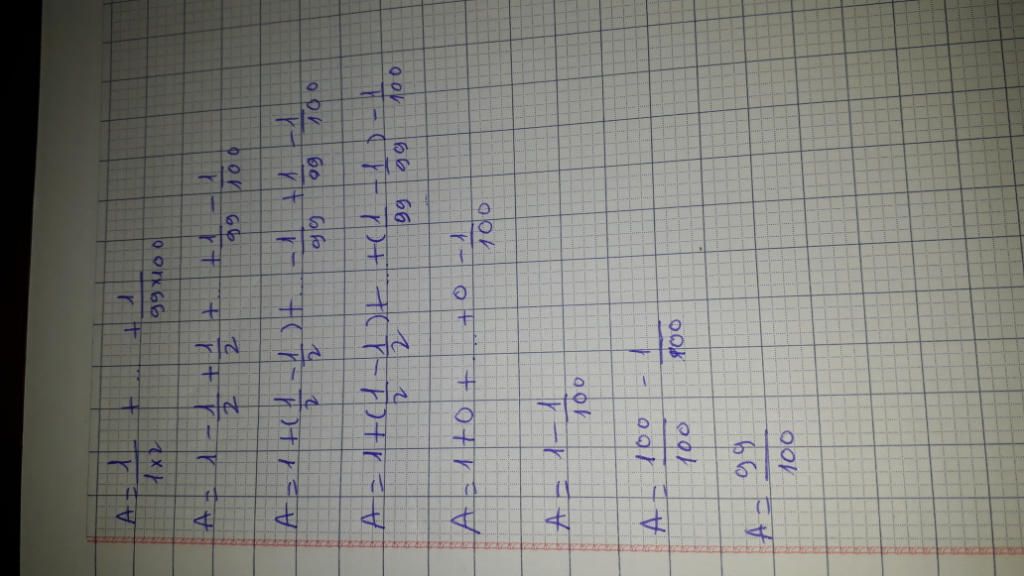 A = 1/(1x2) + ... + 1/(99x100)
A = 1 - 1/2 + 1/2 + ... + 1/99 - 1/100
A = 1 + (1/2 - 1/2) + ... - 1/99 + 1/99 - 1/100
A = 1 + (1/2 - 1/2) + ... + (1/99 - 1/99) - 1/100
A = 1 + 0 + ... + 0 - 1/100
A = 1 - 1/100
A = 100/100 - 1/100
A = 99/100